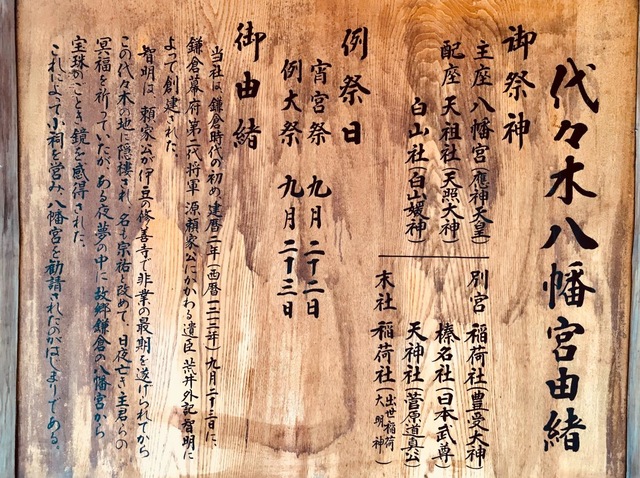 代々木八幡宮由緒
御祭神
主座 八幡宮(應神天皇)
配座 天祖社(天照大神)
白山社(白山媛神)
別宮 稲荷社(豊受大神)
榛名社(日本武尊)
天神社(菅原道真公)
末社 稲荷社(出世稲荷大明神)
例祭日
宵宮祭 九月二十二日
例大祭 九月二十三日
御由緒
当社は、鎌倉時代の初め、建暦二年(西暦一二一二年)九月二十三日に、
鎌倉幕府第二代将軍 源頼家公にかかわる遺臣 荒井外記智明に
よって創建された。
智明は、頼家公が伊豆の修善寺で非業の最期を遂げられてから
この代々木の地に隠棲され、名も宗祐と改めて、日夜亡き主君らの
冥福を祈っていたが、ある夜夢の中に故郷鎌倉の八幡宮から
宝珠のごとき鏡を感得された。
これによって小祠を営み、八幡宮を勧請されたのがはじまりである。